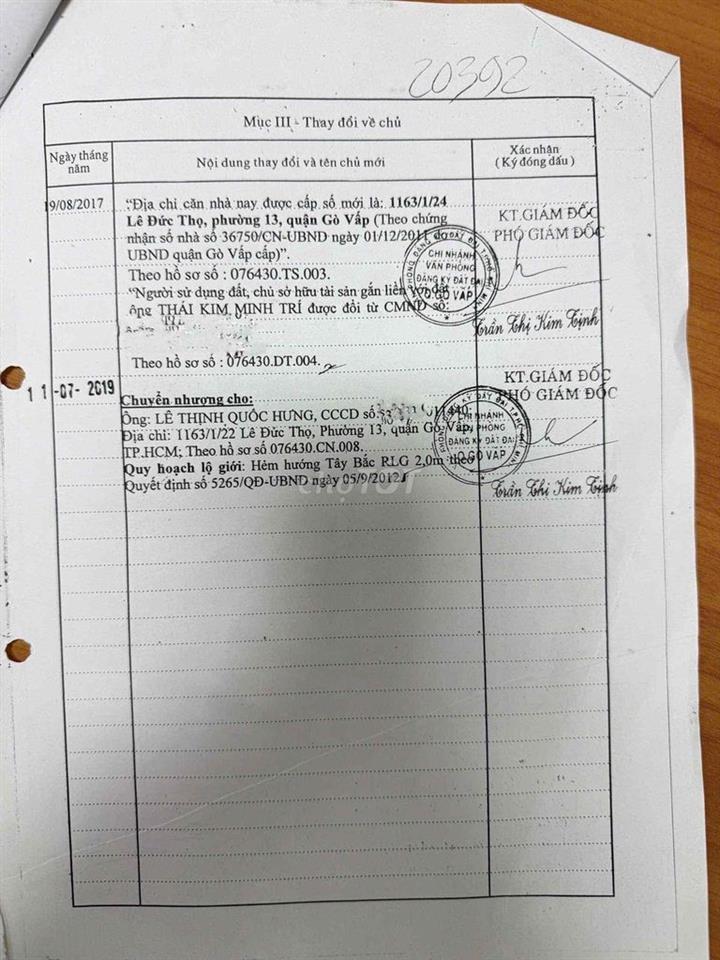 20392
Mục III - Thay đổi về chủ
Ngày tháng năm
Nội dung thay đổi và tên chủ mới
Xác nhận
( Ký đóng dấu )
19/08/2017
"Địa chỉ căn nhà nay được cấp số mới là: 1163/1/24
Lê Đức Thọ, phường 13, quận Gò Vấp (Theo chứng
nhận số nhà số 36750/CN-UBND ngày 01/12/2011 do
UBND quận Gò Vấp cấp)".
Theo hồ sơ số : 076430.TS.003.
"Người sử dụng đất, chủ sở hữu tài sản gắn liền với đất
ông THÁI KIM MINH TRÍ được đổi từ CMND số:
Theo hồ sơ số : 076430.DT.004.
KT.GIÁM ĐỐC
PHÓ GIÁM ĐỐC
CHI NHÁNH
VĂN PHÒNG
ĐĂNG KÝ ĐẤT ĐAI
Q.GÒ VẤP
Trần Thị Kim Tịnh
11-07-2019
Chuyển nhượng cho:
Ông: LÊ THỊNH QUỐC HƯNG, CCCD số
Địa chỉ: 1163/1/22 Lê Đức Thọ, Phường 13, quận Gò Vấp,
TP.HCM; Theo hồ sơ số 076430.CN.008.
Quy hoạch lộ giới: Hẻm hướng Tây Bắc RLG 2,0m theo
Quyết định số 5265/QĐ-UBND ngày 05/9/2012
KT.GIÁM ĐỐC
PHÓ GIÁM ĐỐC
CHI NHÁNH
VĂN PHÒNG
ĐĂNG KÝ ĐẤT ĐAI
Q.GÒ VẤP
Trần Thị Kim Tịnh
CHỢ TỐT